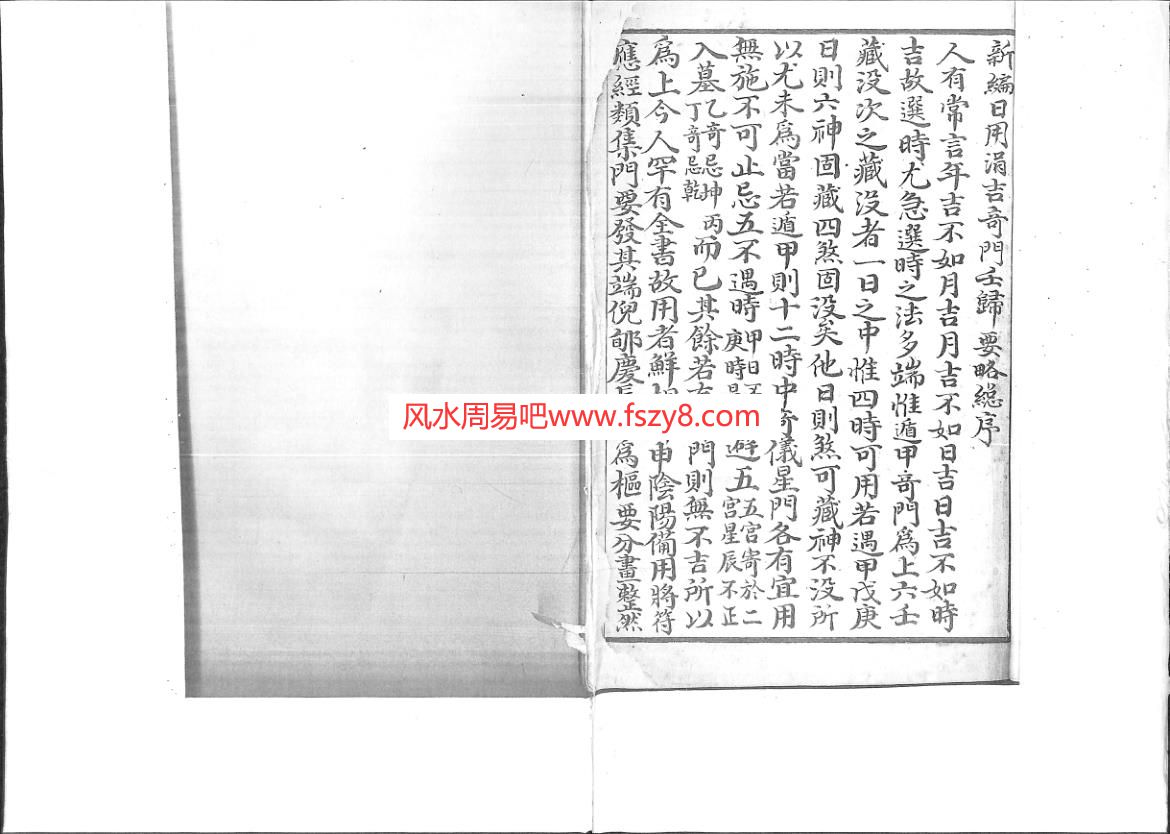 新編日用涓吉奇門壬歸要略總序
人有常言年吉不如月吉月吉不如日吉日吉不如時
吉故選時尤急選時之法多端惟遁甲奇門為上六壬
藏没次之藏没者一日之中惟四時可用若遇甲戊庚
日則六神固藏四煞固没矣他日則煞可藏神不没所
以尤未為當若遁甲則十二時中奇儀星門各有宜用
無施不可止忌五不遇時甲日庚時避五五宮寄於二宮星辰不正
入墓乙奇忌坤丙丁奇忌乾而已其餘若門則無不吉所以
為上今人罕有全書故用者鮮申陰陽備用將符
應經類集門要發其端倪邮慶為樞要分畫整然
风水周易吧www.fszy8.com